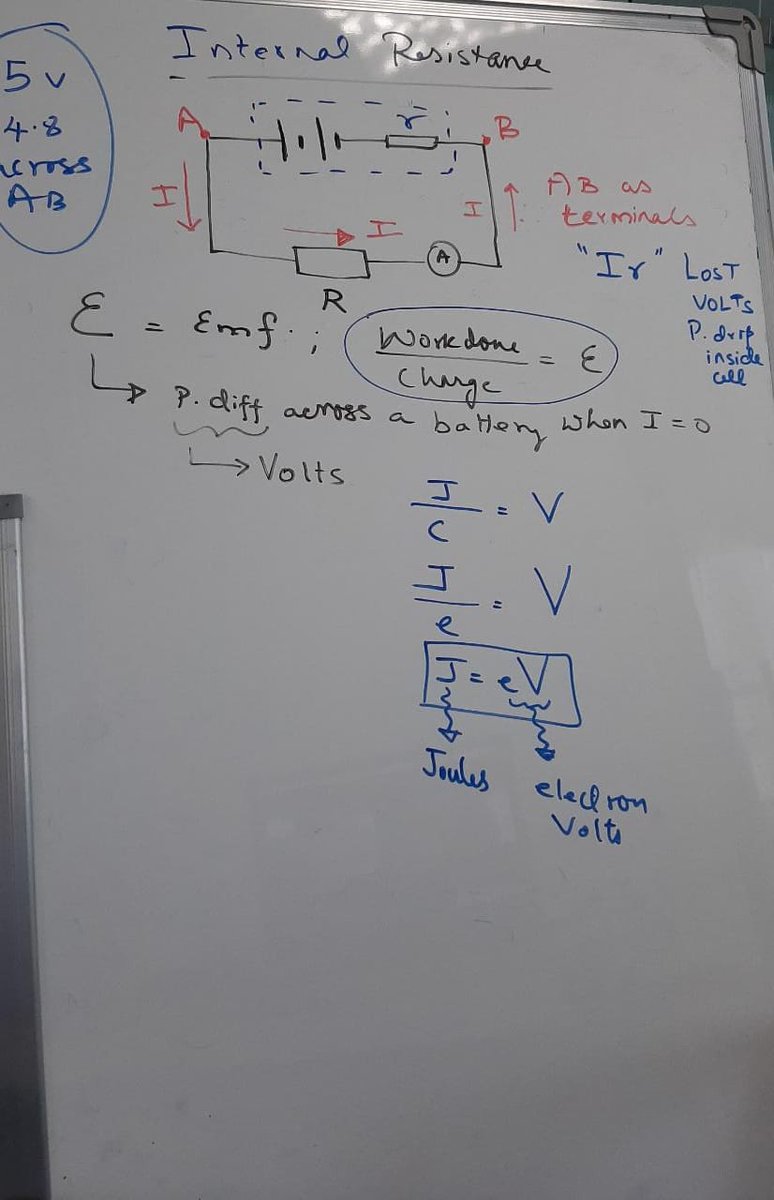 Internal Resistance
5 V
4.8
across
AB
A
r
B
I
I
I
A
R
AB as
terminals
"Ir" LOST
VOLTS
P. drop
inside
cell
ε = Emf. ; Workdone / Charge = ε
P. diff across a battery when I = 0
Volts
J / C = V
J / e = V
J = eV
Joules
electron
Volts